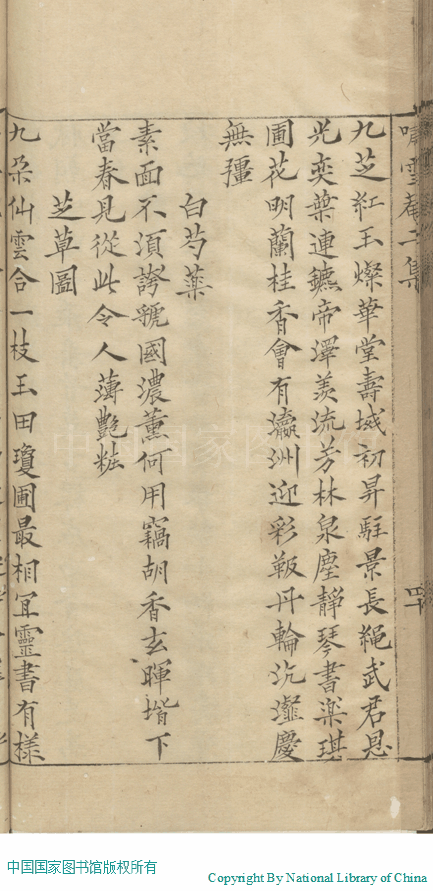 嘯雪菴二集
四十
九芝紅玉燦華堂壽域初昇駐景長繩武君恩
光奕葉連鑣帝澤羨流芳林泉塵靜琴書樂琪
圃花明蘭桂香會有瀛洲迎彩軷丹輪沆瀣慶
無疆
白芍藥
素面不須誇虢國濃薰何用竊胡香玄暉堦下
當春見從此令人薄艷粧
芝草圖
九朵仙雲合一枝玉田瓊圃最相宜靈書有樣
中国国家图书馆
中国国家图书馆版权所有
Copyright By National Library of China